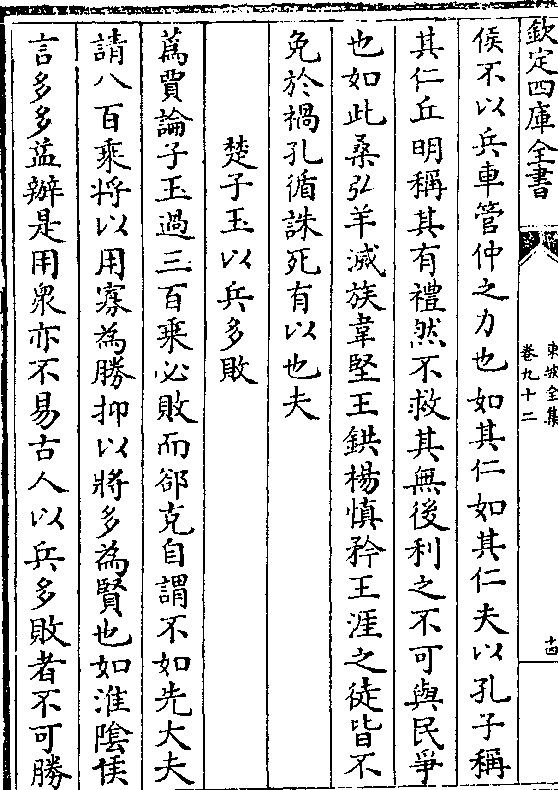 欽定四庫全書
東坡全集
卷九十二
十四
侯不以兵車管仲之力也如其仁如其仁夫以孔子稱
其仁丘明稱其有禮然不救其無後利之不可與民爭
也如此桑弘羊滅族韋堅王鉷楊慎矜王涯之徒皆不
免於禍孔循誅死有以也夫
楚子玉以兵多敗
蒍賈論子玉過三百乘必敗而郤克自謂不如先大夫
請八百乘將以用寡為勝抑以將多為賢也如淮陰侯
言多多益辦是用衆亦不易古人以兵多敗者不可勝